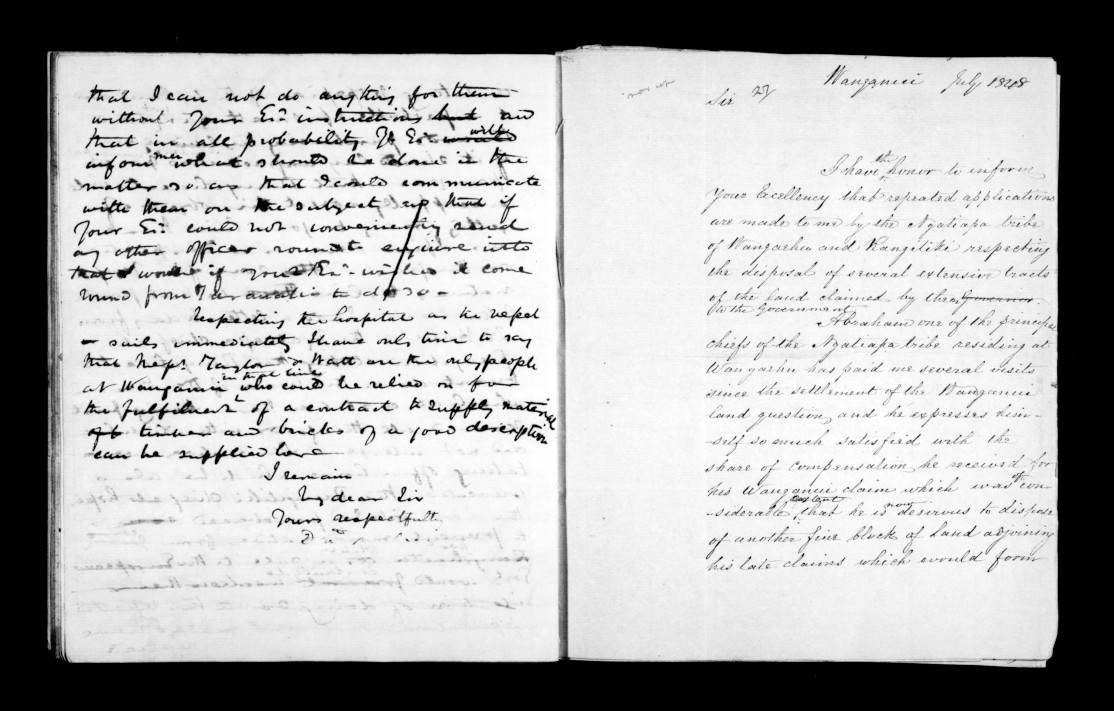 that I can not do anything for them
without Your Exy instructions but and
that in all probability Yr Exy would will
inform me what should be done in the
matter so as that I could communicate
with them on the subject, and that if
Your Exy could not conveniently send
any other officer round to enquire into
that I would if your Exy wishes it come
round from to do so -
Respecting the hospital as the vessel
sails immediately I have only time to say
that Messrs Taylor & Watt are the only people
at Wanganui in that line who could be relied on for
the fulfilment of a contract to supply material
timber and bricks of a good description
can be supplied here
I remain
My dear Sir
Yours respectfully
Wanganui July 1848
Sir 27
I have the honor to inform
Your Excellency that repeated applications
are made to me by the Ngatiapa tribe
of Wangaehu and Rangitiki respecting
the disposal of several extensive tracts
of the land claimed by them Governor.
to the Government
Abraham one of the principal
chiefs of the Ngatiapa tribe residing at
Wangaehu has paid me several visits
since the settlement of the Wanganui
land question, and he expresses him-
self so much satisfied with the
share of compensation he received for
his Wanganui claim which was of con-
-siderable extent that he is now desirous to dispose
of another fine block of Land adjoining
his late claims which would form